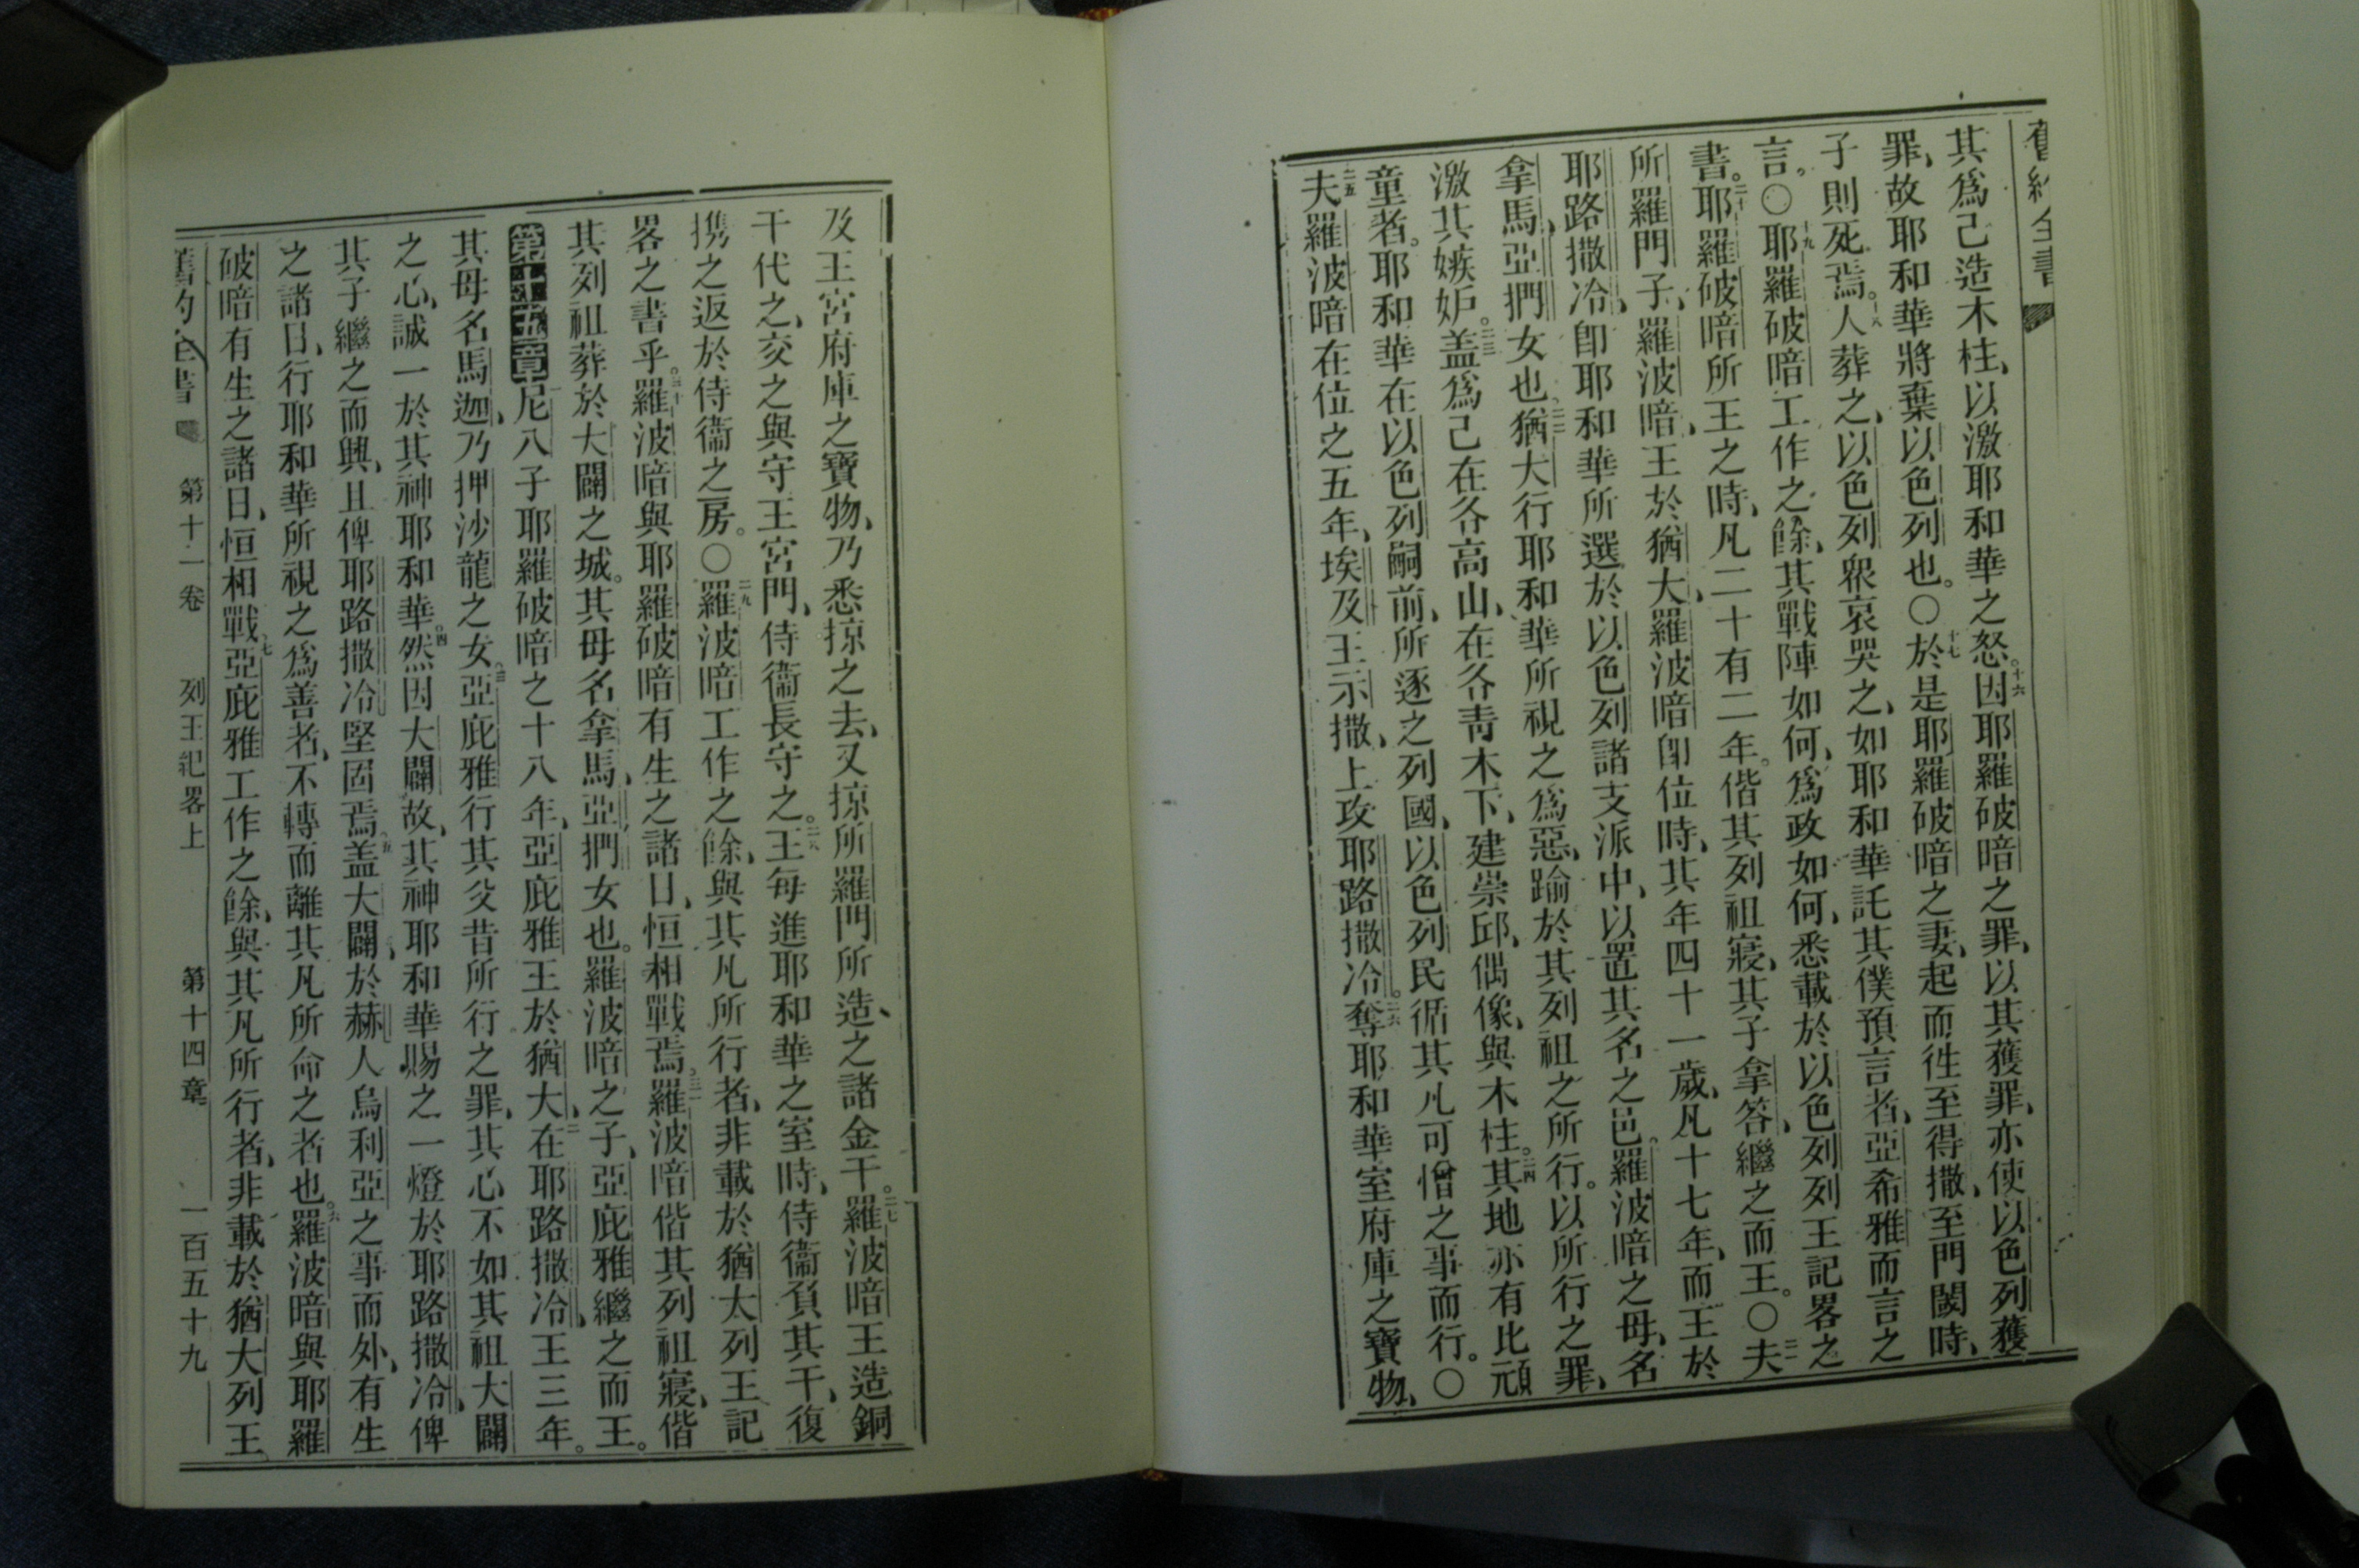 舊約全書
其爲己造木柱、以激耶和華之怒。十六因耶羅破暗之罪、以其獲罪、亦使以色列獲
罪、故耶和華將棄以色列也。〇十七於是耶羅破暗之妻、起而徃至得撒、至門閾時、
子則死焉。十八人葬之、以色列衆哀哭之、如耶和華託其僕預言者、亞希雅而言之
言。〇十九耶羅破暗工作之餘、其戰陣如何、爲政如何、悉載於以色列列王記畧之
書。二十耶羅破暗所王之時、凡二十有二年。偕其列祖寢、其子拿答繼之而王。〇二一夫
所羅門子、羅波暗、王於猶大、羅波暗卽位時、其年四十一歲、凡十七年、而王於
耶路撒冷、卽耶和華所選於以色列諸支派中、以置其名之邑。羅波暗之母、名
拿馬、亞捫女也。二二猶大行耶和華所視之爲惡、踰於其列祖之所行。以所行之罪、
激其嫉妒。二三盖爲己在各高山、在各青木下、建崇邱、偶像、與木柱。二四其地亦有比頑
童者。耶和華在以色列嗣前、所逐之列國、以色列民循其凡可憎之事而行。〇
二五夫羅波暗在位之五年、埃及王示撒、上攻耶路撒冷。二六奪耶和華室府庫之寶物、
及王宮府庫之寶物、乃悉掠之去、又掠所羅門所造、之諸金干。二七羅波暗王造銅
干代之、交之與守王宮門、侍衞長守之。二八王每進耶和華之室時、侍衞負其干、復
携之返於侍衞之房。〇二九羅波暗工作之餘、與其凡所行者、非載於猶太列王記
畧之書乎。三十羅波暗與耶羅破暗有生之諸日、恒相戰焉。三一羅波暗偕其列祖寢、偕
其列祖葬於大闢之城。其母名拿馬、亞捫女也。羅波暗之子、亞庇雅繼之而王。
第十五章尼八子耶羅破暗之十八年、亞庇雅王於猶大、二在耶路撒冷、王三年。
其母名馬迦、乃押沙龍之女。三亞庇雅行其父昔所行之罪、其心不如其祖大闢
之心、誠一於其神耶和華。四然因大闢故、其神耶和華賜之一燈於耶路撒冷、俾
其子繼之而興、且俾耶路撒冷堅固焉。五盖大闢、於赫人烏利亞之事而外、有生
之諸日、行耶和華所視之爲善者、不轉而離其凡所命之者也。六羅波暗與耶羅
破暗有生之諸日、恒相戰。七亞庇雅工作之餘、與其凡所行者、非載於猶大列王
舊約全書 第十一卷 列王紀畧上 第十四章 一百五十九